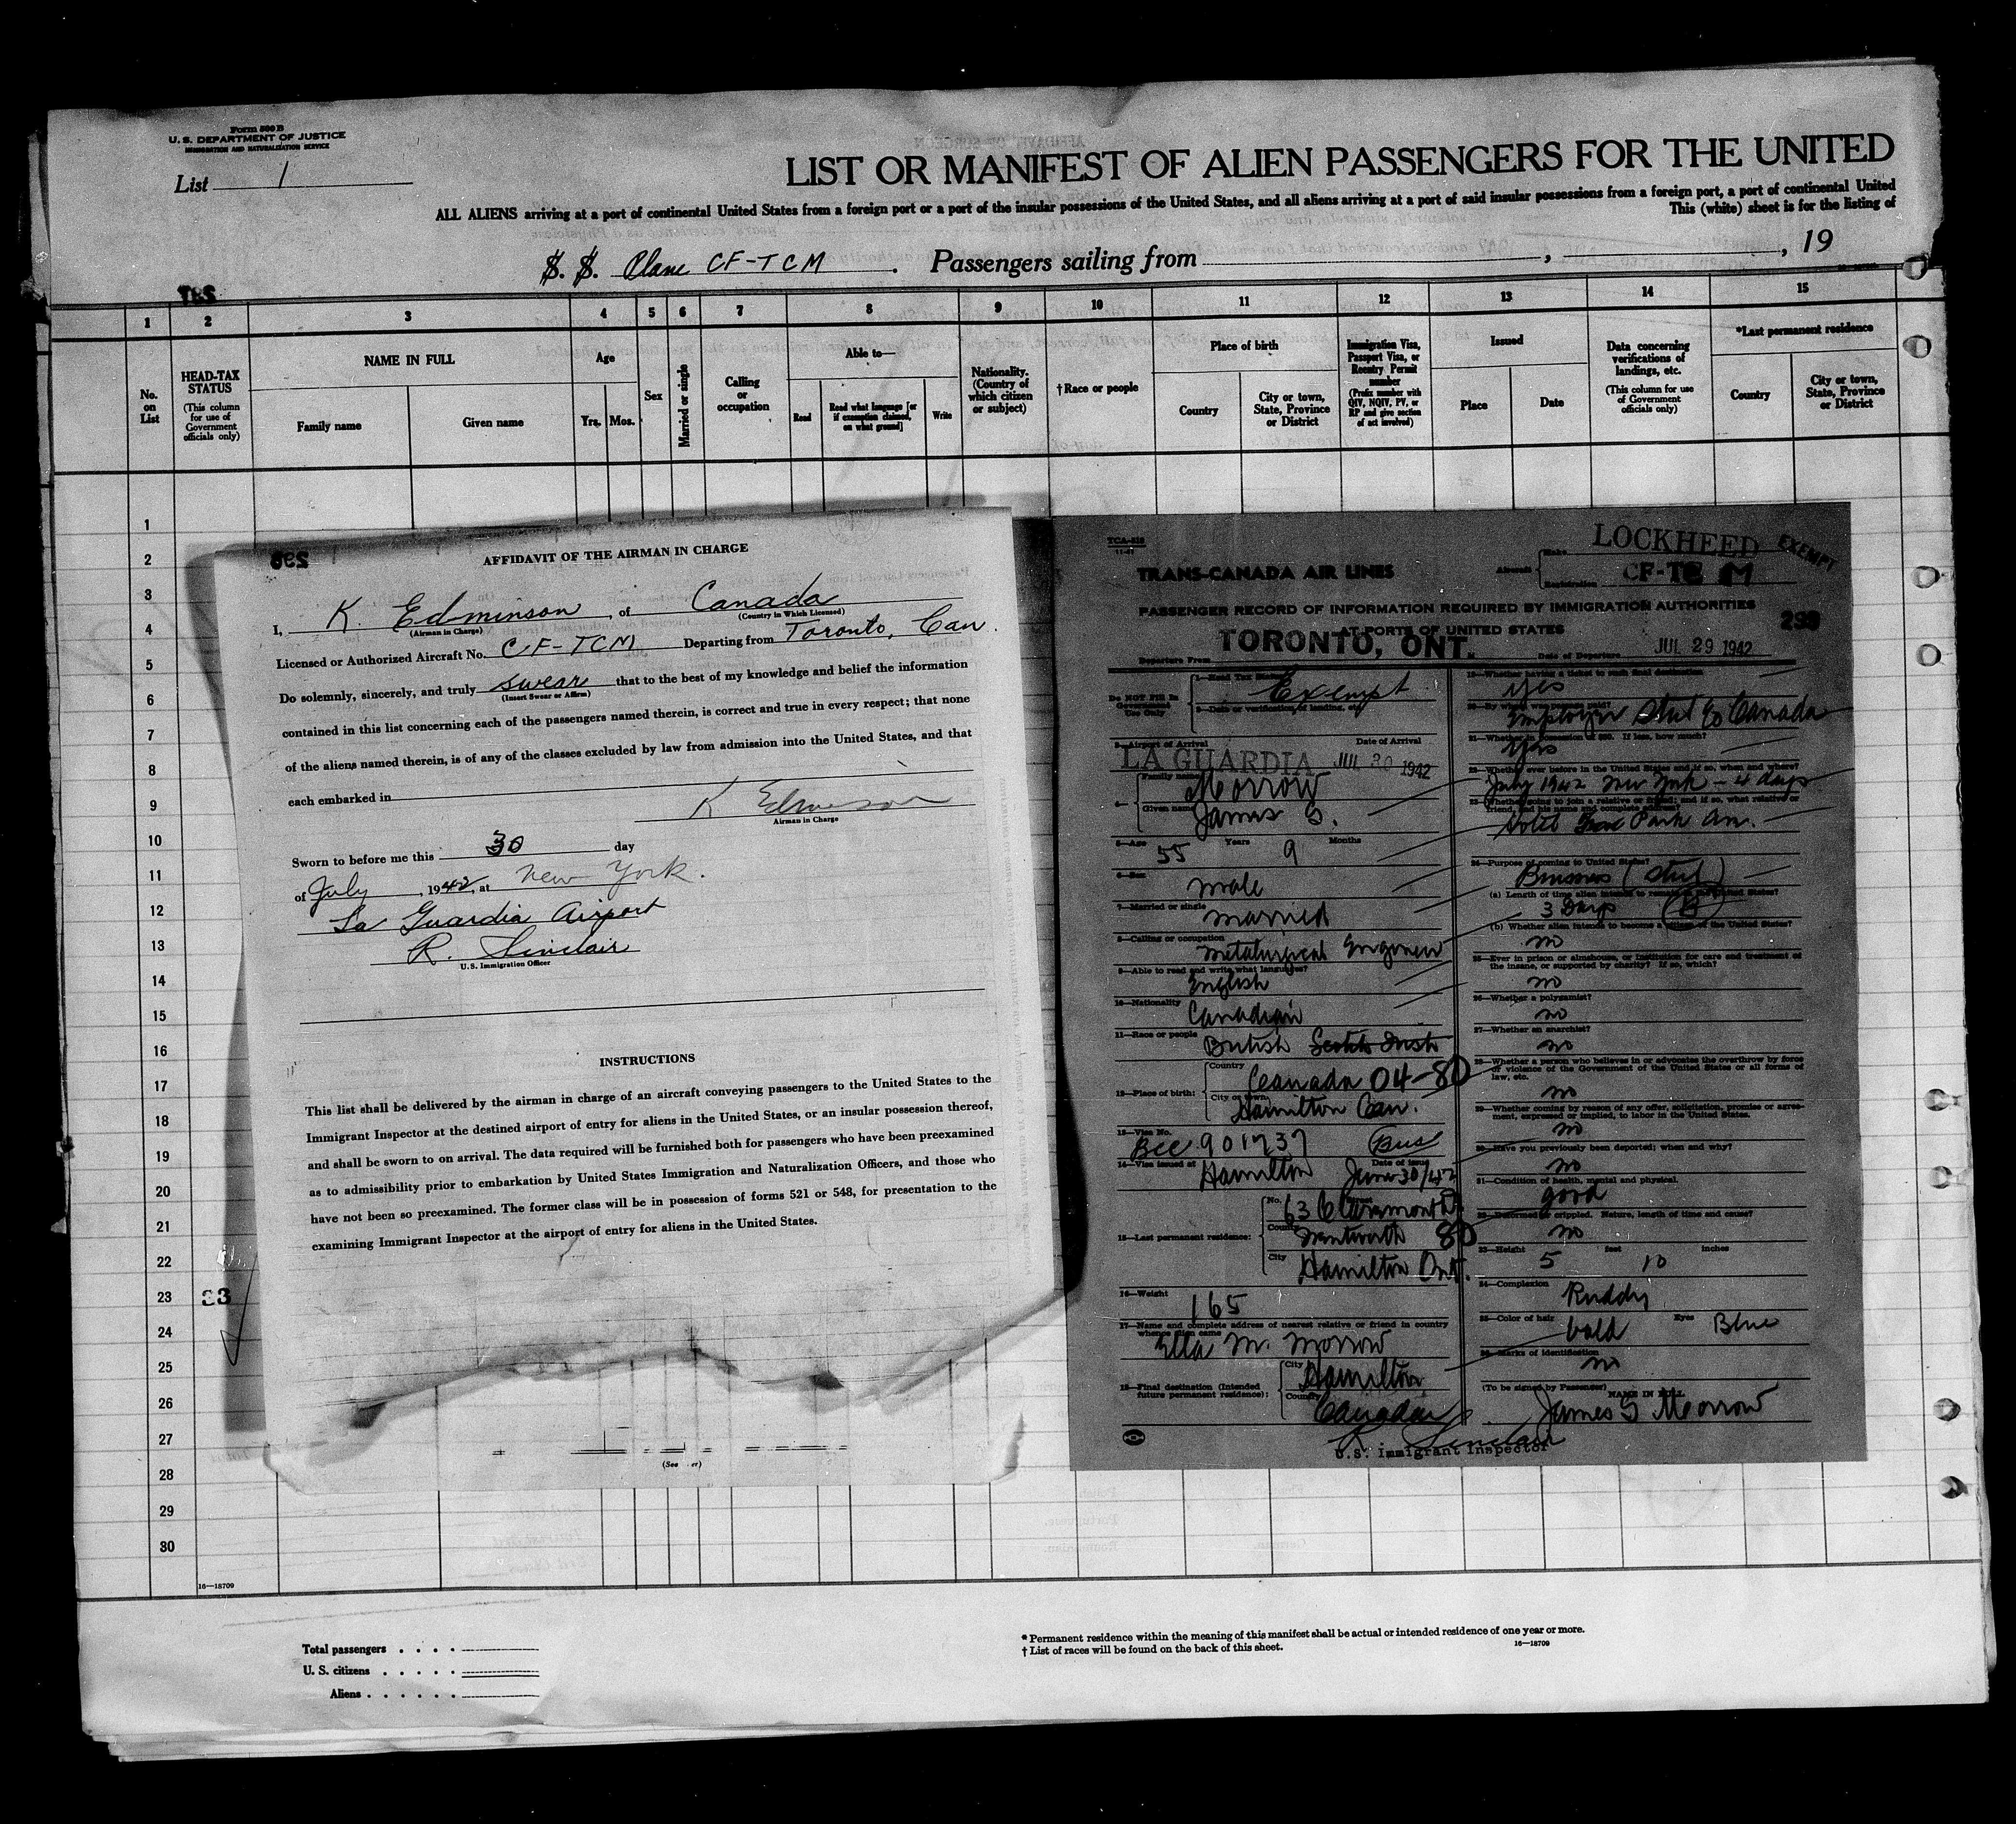 Form 500 B
U. S. DEPARTMENT OF JUSTICE
IMMIGRATION AND NATURALIZATION SERVICE
List 1
LIST OR MANIFEST OF ALIEN PASSENGERS FOR THE UNITED
ALL ALIENS arriving at a port of continental United States from a foreign port or a port of the insular possessions of the United States, and all aliens arriving at a port of said insular possessions from a foreign port, a port of continental United
This (white) sheet is for the listing of
S. S. Plane CF-TCM . Passengers sailing from , , 19
1 2 3 4 5 6 7 8 9 10 11 12 13 14 15
No. on List
HEAD-TAX STATUS
(This column for use of Government officials only)
NAME IN FULL
Family name
Given name
Age
Yrs. Mos.
Sex
Married or single
Calling or occupation
Able to—
Read
Read what language [or if exemption claimed, on what ground]
Write
Nationality. (Country of which citizen or subject)
†Race or people
Place of birth
Country
City or town, State, Province or District
Immigration Visa, Passport Visa, or Reentry Permit number
(Prefix number with QIV, NQIV, PV, or RP and give section of act involved)
Issued
Place
Date
Data concerning verifications of landings, etc.
(This column for use of Government officials only)
*Last permanent residence
Country
City or town, State, Province or District
1
2
3
4
5
6
7
8
9
10
11
12
13
14
15
16
17
18
19
20
21
22
23
24
25
26
27
28
29
30
33
16—18709
AFFIDAVIT OF THE AIRMAN IN CHARGE
I, K. Edminson , of Canada
(Airman in Charge) (Country in Which Licensed)
Licensed or Authorized Aircraft No. CF-TCM Departing from Toronto, Can.
Do solemnly, sincerely, and truly swear that to the best of my knowledge and belief the information
(Insert Swear or Affirm)
contained in this list concerning each of the passengers named therein, is correct and true in every respect; that none
of the aliens named therein, is of any of the classes excluded by law from admission into the United States, and that
each embarked in
K Edminson
Airman in Charge
Sworn to before me this 30 day
of July , 1942, at New York.
La Guardia Airport
R. Sinclair
U.S. Immigration Officer
INSTRUCTIONS
This list shall be delivered by the airman in charge of an aircraft conveying passengers to the United States to the
Immigrant Inspector at the destined airport of entry for aliens in the United States, or an insular possession thereof,
and shall be sworn to on arrival. The data required will be furnished both for passengers who have been preexamined
as to admissibility prior to embarkation by United States Immigration and Naturalization Officers, and those who
have not been so preexamined. The former class will be in possession of forms 521 or 548, for presentation to the
examining Immigrant Inspector at the airport of entry for aliens in the United States.
TRANS-CANADA AIR LINES
Aircraft Make LOCKHEED
Registration CF-TCM
EXEMPT
PASSENGER RECORD OF INFORMATION REQUIRED BY IMMIGRATION AUTHORITIES
AT PORTS OF UNITED STATES
Departure From TORONTO, ONT. Date of Departure JUL 29 1942
Do NOT Fill In Government Use Only
1—Head Tax Status Exempt
2—Date or verification of landing, etc.
3—Airport of Arrival LA GUARDIA Date of Arrival JUL 30 1942
4— Family name Morrow
Given name James G.
5—Age 55 Years 9 Months
6—Sex Male
7—Married or single Married
8—Calling or occupation Metalurgical Engineer
9—Able to read and write what languages? English
10—Nationality Canadian
11—Race or people British Scotch Irish
12—Place of birth: Country Canada 04-80
City or town Hamilton Can.
13—Visa No. Bcc 901737 Bus
14—Visa issued at Hamilton Date of issue June 30/42
15—Last permanent residence: No. 63 Street Claremont Dr
County Wentworth 80
City Hamilton Ont.
16—Weight 165
17—Name and complete address of nearest relative or friend in country whence alien came
Ella M. Morrow
18—Final destination (Intended future permanent residence): City Hamilton
Country Canada
R. Sinclair
U.S. Immigrant Inspector
19—Whether having a ticket to such final destination
Yes
20—By whom was passage paid?
Employer Steel Co Canada
21—Whether in possession of $50. If less, how much?
Yes
22—Whether ever before in the United States and if so, when and where?
July 1942 New York - 4 days
23—Whether going to join a relative or friend; and if so, what relative or friend, and his name and complete address?
Hotel Park Av.
24—Purpose of coming to United States?
Business (Steel)
(a) Length of time alien intends to remain in the United States?
3 Days (B)
(b) Whether alien intends to become a citizen of the United States?
no
25—Ever in prison or almshouse, or institution for care and treatment of the insane, or supported by charity? If so, which?
no
26—Whether a polygamist?
no
27—Whether an anarchist?
no
28—Whether a person who believes in or advocates the overthrow by force or violence of the Government of the United States or all forms of law, etc.
no
29—Whether coming by reason of any offer, solicitation, promise or agreement, expressed or implied, to labor in the United States.
no
30—Have you previously been deported; when and why?
no
31—Condition of health, mental and physical.
good
32—Deformed or crippled. Nature, length of time and cause?
no
33—Height 5 feet 10 inches
34—Complexion Ruddy
35—Color of hair bald Eyes Blue
36—Marks of identification
no
(To be signed by Passenger) NAME IN FULL
James G Morrow
Total passengers . . . .
U. S. citizens . . . . .
Aliens . . . . . .
* Permanent residence within the meaning of this manifest shall be actual or intended residence of one year or more.
† List of races will be found on the back of this sheet.
16—18709